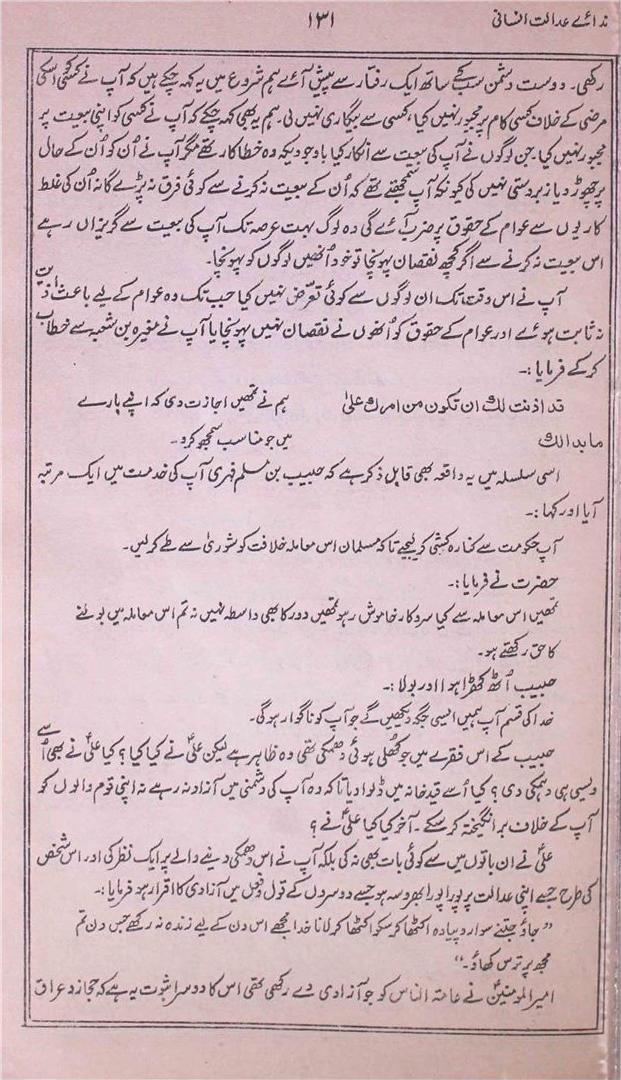 ندائے عدالت انسانی
۱۳۱
رکھی۔ دوست دشمن سب کے ساتھ ایک رفتار سے پیش آئے ہم شروع میں یہ کہہ چکے ہیں کہ آپ نے کسی کو اسکی
مرضی کے خلاف کسی کام پر مجبور نہیں کیا، کسی سے بیگاری نہیں لی۔ ہم یہ بھی کہہ چکے کہ آپ نے کسی کو اپنی بیعت پر
مجبور نہیں کیا۔ جن لوگوں نے آپ کی بیعت سے انکار کیا باوجودیکہ وہ خطاکار تھے مگر آپ نے اُن کو اُن کے حال
پر چھوڑ دیا زبردستی نہیں کی کیونکہ آپ سمجھتے تھے کہ اُن کے بیعت نہ کرنے سے کوئی فرق نہ پڑے گا نہ اُن کی غلط
کاریوں سے عوام کے حقوق پر ضرب آئے گی وہ لوگ بہت عرصہ تک آپ کی بیعت سے گریزاں رہے
اس بیعت نہ کرنے سے اگر کچھ نقصان پہونچا تو خود اُنھیں لوگوں کو پہونچا۔
آپ نے اس وقت تک ان لوگوں سے کوئی تعرّض نہیں کیا جب تک وہ عوام کے لیے باعث اذیت
نہ ثابت ہوئے اور عوام کے حقوق کو اُنھوں نے نقصان نہیں پہونچایا آپ نے مغیرہ بن شعبہ سے خطاب
کر کے فرمایا:۔
قد اذنت لك ان تكون من امرك علىٰ ہم نے تمھیں اجازت دی کہ اپنے بارے
ما بدا لك میں جو مناسب سمجھو کرو۔
اسی سلسلہ میں یہ واقعہ بھی قابل ذکر ہے کہ حبیب بن مسلم فہری آپ کی خدمت میں ایک مرتبہ
آیا اور کہا:۔
آپ حکومت سے کنارہ کشی کر لیجیے تاکہ مسلمان اس معاملہ خلافت کو شوریٰ سے طے کر لیں۔
حضرت نے فرمایا:۔
تمھیں اس معاملہ سے کیا سروکار خاموش رہو تمھیں دور کا بھی واسطہ نہیں نہ تم اس معاملہ میں بولنے
کا حق رکھتے ہو۔
حبیب اُٹھ کھڑا ہوا اور بولا:۔
خدا کی قسم آپ ہمیں ایسی جگہ دیکھیں گے جو آپ کو ناگوار ہوگی۔
حبیب کے اس فقرے میں جو کھلی ہوئی دھمکی تھی وہ ظاہر ہے لیکن علیؑ نے کیا کیا؟ کیا علیؑ نے بھی اُسے
ویسی ہی دھمکی دی؟ کیا اُسے قید خانہ میں ڈلوا دیا تا کہ وہ آپ کی دشمنی میں آزاد نہ رہے نہ اپنی قوم والوں کو
آپ کے خلاف برانگیختہ کر سکے۔ آخر کیا کیا علیؑ نے؟
علیؑ نے ان باتوں میں سے کوئی بات بھی نہ کی بلکہ آپ نے اس دھمکی دینے والے پر ایک نظر کی اور اس شخص
کی طرح جسے اپنی عدالت پر پورا پورا بھروسہ ہو جسے دوسروں کے قول و فعل میں آزادی کا اقرار ہو فرمایا:۔
”جاؤ جتنے سوار و پیادہ اکٹھا کر سکو اکٹھا کر لانا خدا مجھے اس دن کے لیے زندہ نہ رکھے جس دن تم
مجھ پر ترس کھاؤ۔“
امیرالمومنینؑ نے عامۃ الناس کو جو آزادی دے رکھی تھی اس کا دوسرا ثبوت یہ ہے کہ حجاز و عراق